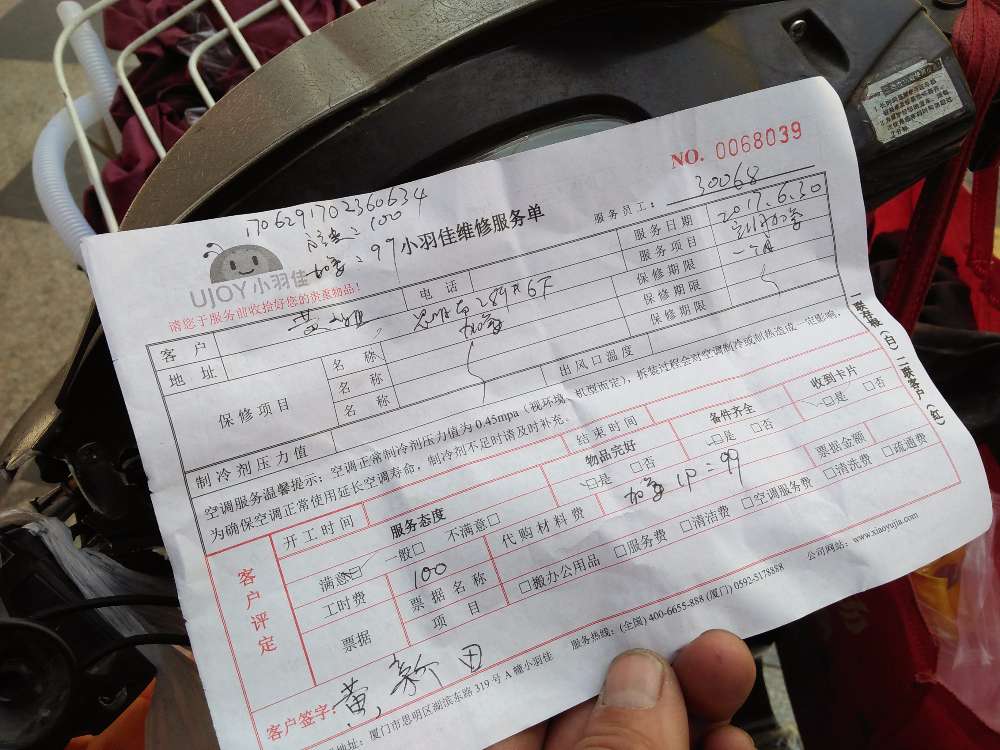 NO. 0068039
1706291702360634
=100
=97
UJOY小羽佳
小羽佳维修服务单
服务员工：30068
请您于服务前收拾好您的贵重物品！
客户
黄
电话
服务日期
2017.6.30
地址
服务项目
保修项目
名称
保修期限
一个月
名称
保修期限
名称
保修期限
制冷剂压力值
出风口温度
空调服务温馨提示：空调正常制冷剂压力值为 0.45mpa（视环境、机型而定），拆装过程会对空调制冷或制热造成一定影响，
为确保空调正常使用延长空调寿命，制冷剂不足时请及时补充。
一联存根（白）二联客户（红）
客户评定
开工时间
结束时间
服务态度
物品完好
备件齐全
收到卡片
满意□ 一般□ 不满意□
□是 □否
□是 □否
□是 □否
工时费
100
代购材料费
1P=99
票据金额
票据
票据名称
项目
□搬办公用品 □服务费 □清洁费 □空调服务费 □清洗费 □疏通费
客户签字：黄新田
地址：厦门市思明区湖滨东路 319 号 A 幢小羽佳 服务热线：(全国) 400-6655-888 (厦门) 0592-5178888 公司网站：www.xiaoyujia.com